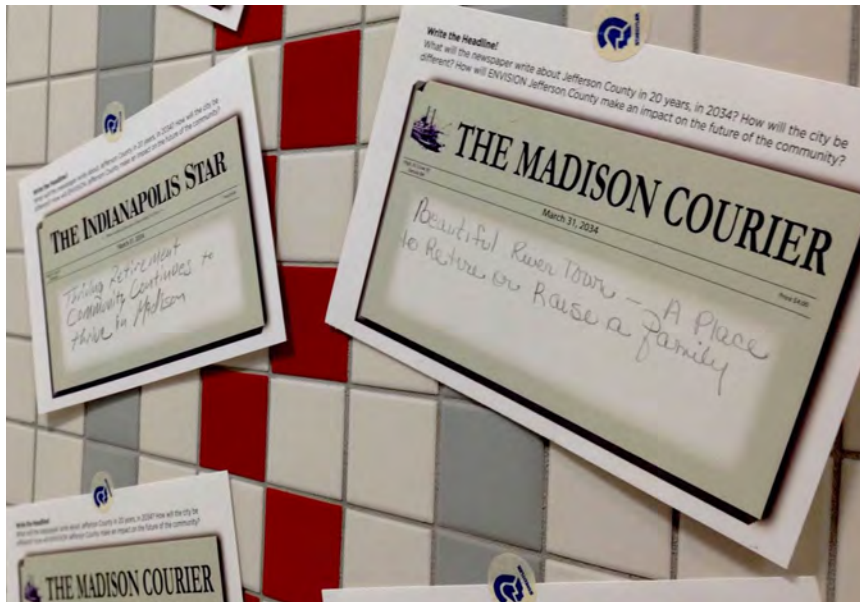 Write the Headline!
What will the newspaper write about Jefferson County in 20 years, in 2034? How will the city be
different? How will ENVISION Jefferson County make an impact on the future of the community?
THE MADISON COURIER
March 31, 2034
Price $4.00
Beautiful River Town – A Place
to Retire or Raise a family
Write the Headline!
What will the newspaper write about Jefferson County in 20 years, in 2034? How will the city be
different? How will ENVISION Jefferson County make an impact on the future of the community?
THE INDIANAPOLIS STAR
March 31, 2034
Thriving Retirement
Community Continues to
thrive in Madison
Write the Headline!
What will the newspaper write about Jefferson County in 20 years, in 2034? How will the city be
different? How will ENVISION Jefferson County make an impact on the future of the community?
THE MADISON COURIER